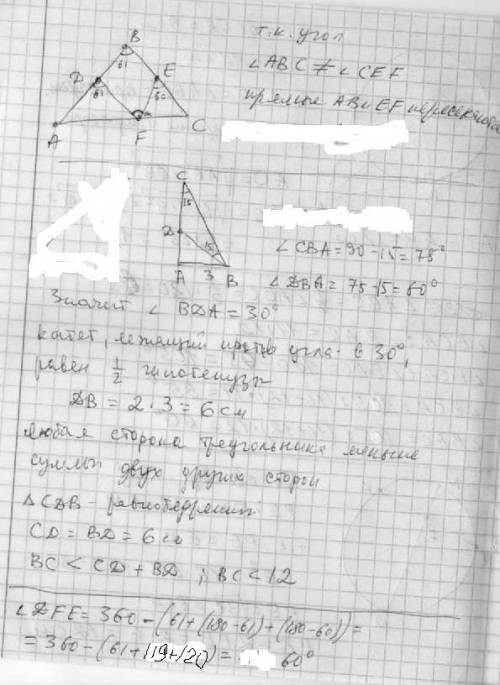 т.к. угол
B
61
∠ABC ≠ ∠CEF
D
E
61
60
прямые AB и EF пересекаются
A
F
C
C
15
D
∠CBA = 90 - 15 = 75°
15
A 3 B
∠DBA = 75 - 15 = 60°
Значит ∠ BDA = 30°
катет, лежащий против угла в 30°,
равен 1/2 гипотенузы
DB = 2 · 3 = 6 см
любая сторона треугольника меньше
суммы двух других сторон
ΔCDB - равнобедренный
CD = BD = 6 см
BC < CD + BD ; BC < 12
∠DFE = 360 - (61 + (180 - 61) + (180 - 60)) =
= 360 - (61 + 119 + 120) = 60°